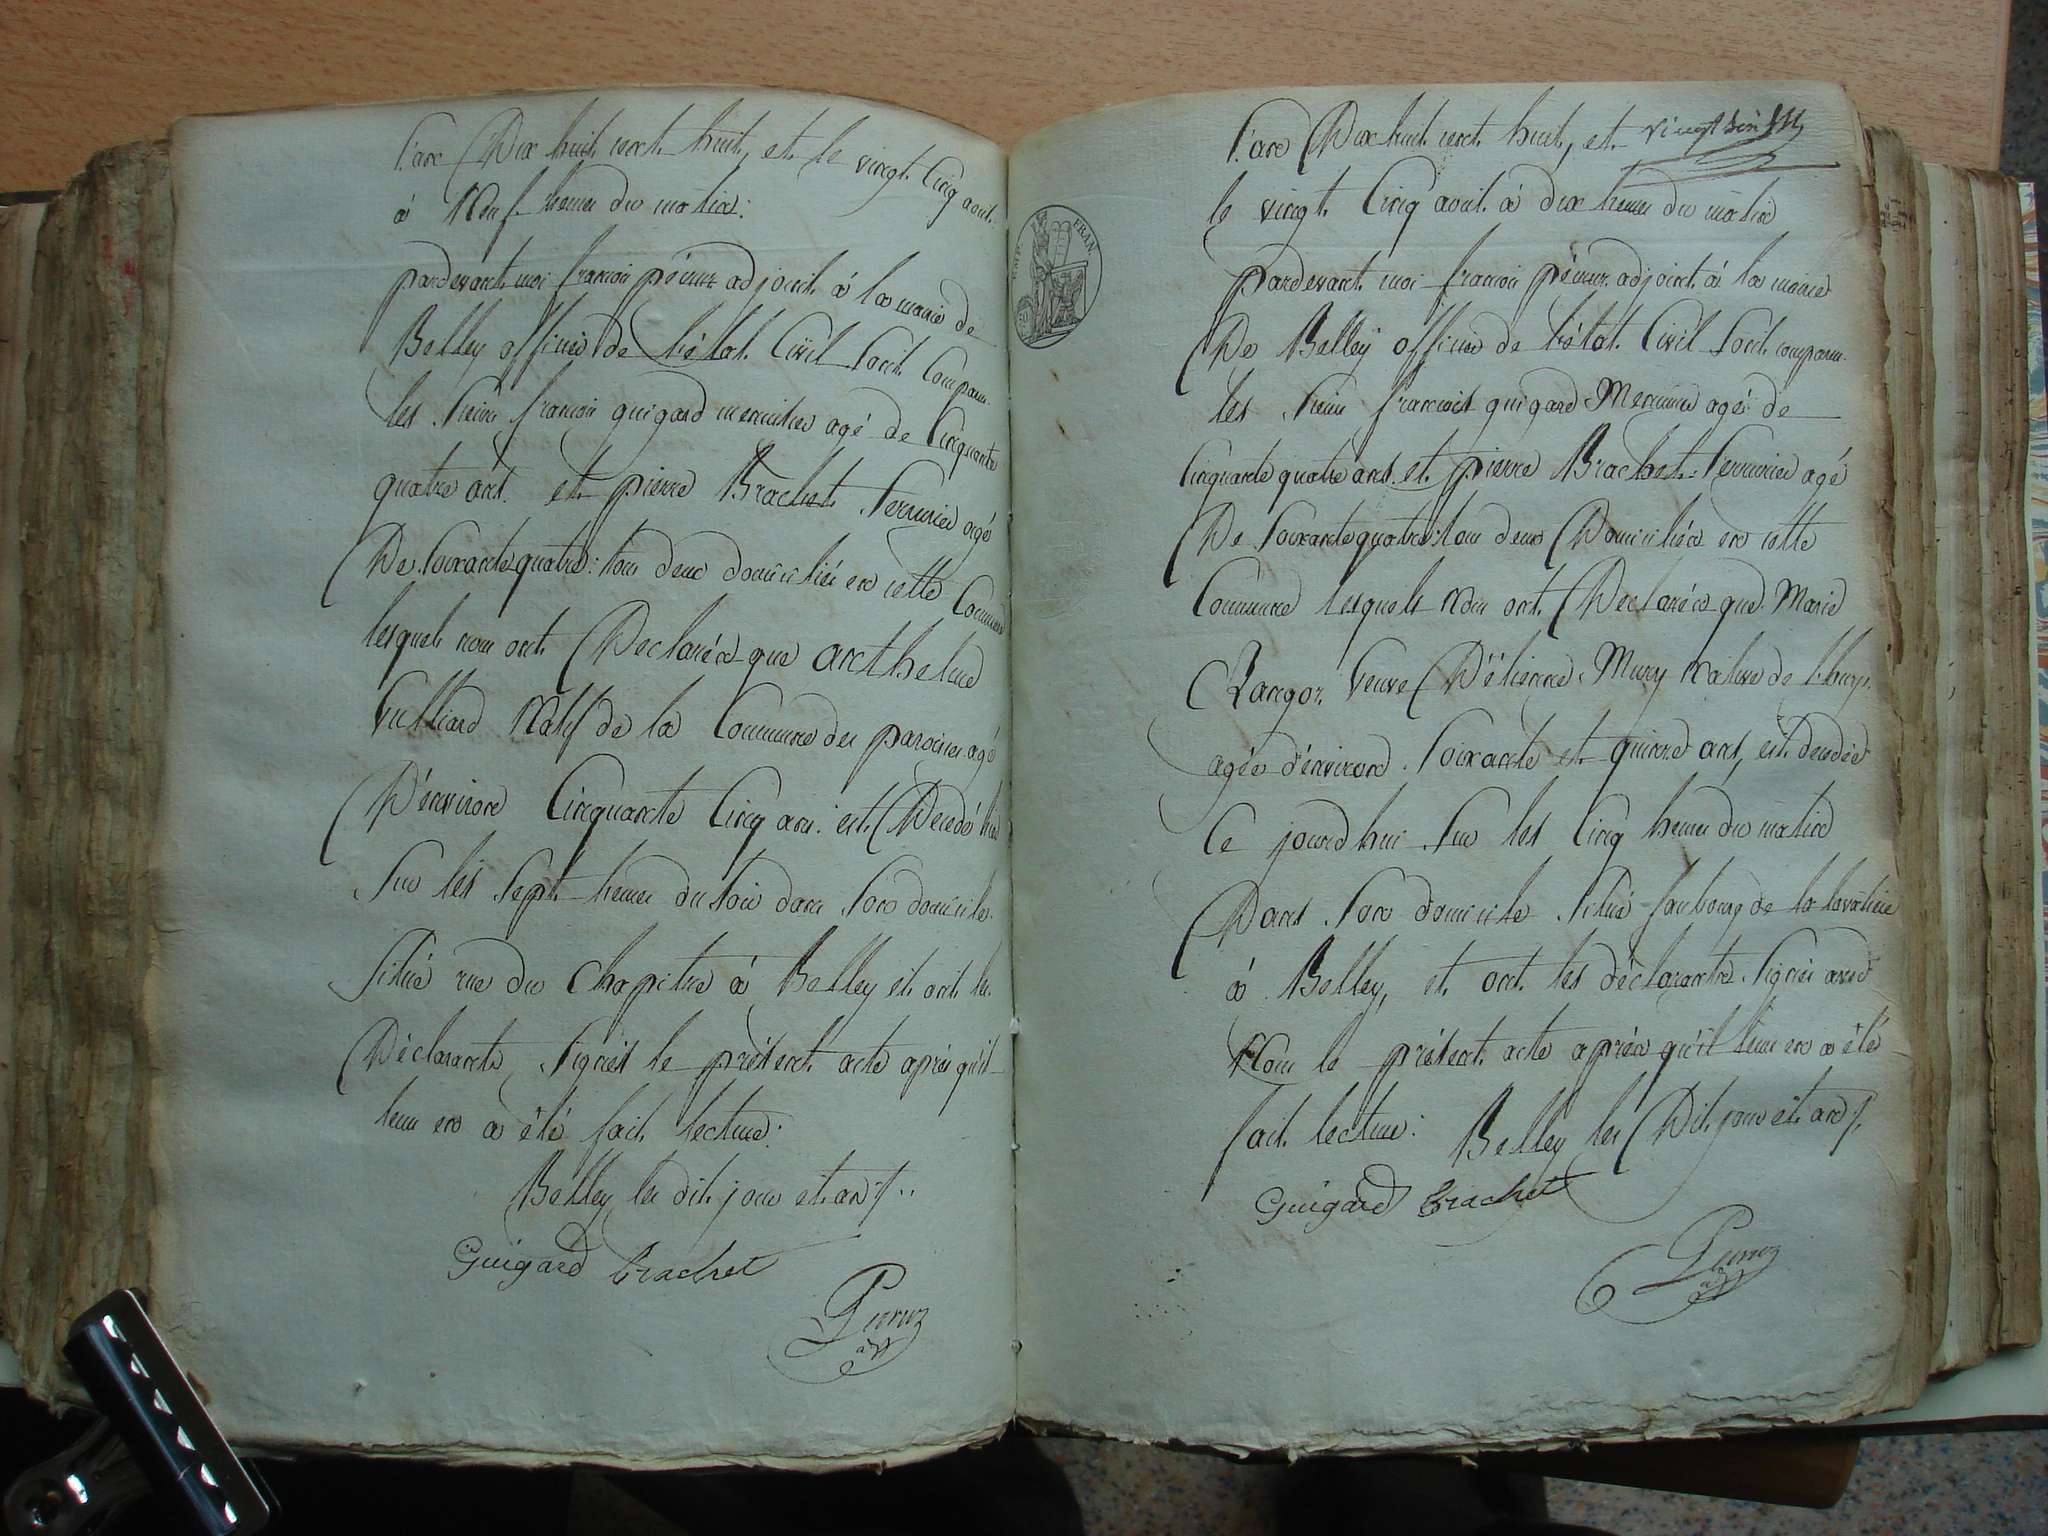 l'an Dix huit cent huit, et le vingt Cinq aout
à Neuf heures du matin:
pardevant moi françois péruz adjoint à la mairie de
Belley officier de l'état Civil Sont Comparu
les Sieurs françois guigard menuisier agé de Cinquante
quatre ans et pierre Brachet Serrurier agé
De Soixante quatre: tous deux domiciliés en cette Commune
lesquels nous ont Declarés que anthelme
Vulliard Natif de la Commune des paroisses agé
D'environ Cinquante Cinq ans est Décédé hier
Sur les Sept heures du Soir dans Son domicile
Situé rue du Chapitre à Belley et ont les
Déclarants Signés le présent acte après qu'il
leur en a été fait lecture:
Belley les dit jour et an
Guigard Brachet
Peruz
adjt
l'an Dix huit cent huit, et
le vingt Cinq aout à dix heures du matin
EMP. FRAN
pardevant moi françois péruz adjoint à la mairie
De Belley officier de l'état Civil Sont comparu
les Sieurs françois guigard Menuisier agé de
Cinquante quatre ans et pierre Brachet: Serrurier agé
De Soixante quatre: tous deux Domiciliés en cette
Commune lesquels Nous ont Declarés que Marie
Rangoz Veuve D'étienne Mury Native de
agée d'environ Soixante et quinze ans, est decedée
Ce jourd'hui Sur les Cinq heures du matin
Dans Son domicile Situé faubourg de la
à Belley, et ont les déclarants Signés avec
Nous le présent acte après qu'il leur en a été
fait lecture: Belley les Dit jour et an
Guigard Brachet
Peruz
adjt